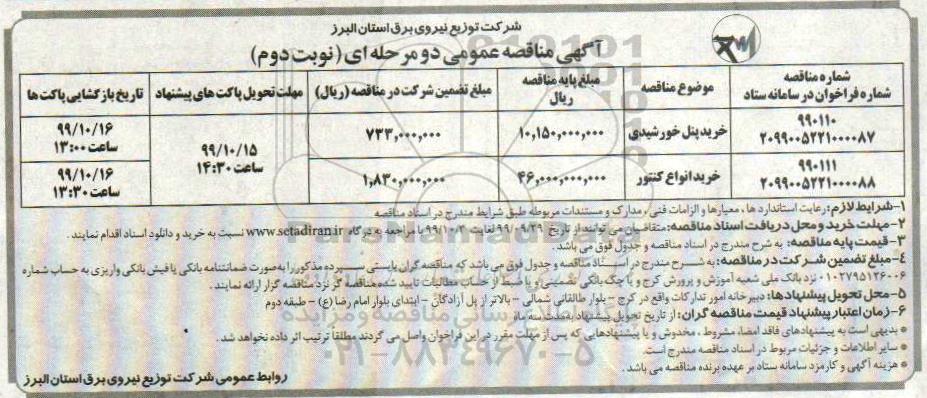 شرکت توزیع نیروی برق استان البرز
آگهی مناقصه عمومی دو مرحله ای (نوبت دوم)
شماره مناقصه
شماره فراخوان در سامانه ستاد
موضوع مناقصه
مبلغ پایه مناقصه
ریال
مبلغ تضمین شرکت در مناقصه (ریال)
مهلت تحویل پاکت های پیشنهاد
تاریخ بازگشایی پاکت ها
۹۹۰۱۱۰
۲۰۹۹۰۰۵۲۲۱۰۰۰۰۸۷
خرید پنل خورشیدی
۱۰,۱۵۰,۰۰۰,۰۰۰
۷۳۳,۰۰۰,۰۰۰
۹۹/۱۰/۱۵
ساعت ۱۴:۳۰
۹۹/۱۰/۱۶
ساعت ۱۳:۰۰
۹۹۰۱۱۱
۲۰۹۹۰۰۵۲۲۱۰۰۰۰۸۸
خرید انواع کنتور
۴۶,۰۰۰,۰۰۰,۰۰۰
۱,۸۳۰,۰۰۰,۰۰۰
۹۹/۱۰/۱۶
ساعت ۱۳:۳۰
۱-شرایط لازم: رعایت استانداردها، معیارها و الزامات فنی، مدارک و مستندات مربوطه طبق شرایط مندرج در اسناد مناقصه
۲-مهلت خرید و محل دریافت اسناد مناقصه: متقاضیان می توانند از تاریخ ۹۹/۰۹/۲۹ لغایت ۹۹/۱۰/۳ با مراجعه به درگاه www.setadiran.ir نسبت به خرید و دانلود اسناد اقدام نمایند.
۳-قیمت پایه مناقصه: به شرح مندرج در اسناد مناقصه و جدول فوق می باشد.
۴-مبلغ تضمین شرکت در مناقصه: به شرح مندرج در اسناد مناقصه و جدول فوق می باشد که مناقصه گران بایستی سپرده مذکور را به صورت ضمانتنامه بانکی یا فیش بانکی واریزی به حساب شماره
۰۱۰۲۷۹۵۱۲۶۰۰۶ نزد بانک ملی شعبه آموزش و پرورش کرج و یا چک بانکی تضمینی و یا ضبط از حساب مطالبات تایید شده مناقصه گر نزد مناقصه گزار ارائه نمایند.
۵-محل تحویل پیشنهادها: دبیرخانه امور تدارکات واقع در کرج - بلوار طالقانی شمالی - بالاتر از پل آزادگان - ابتدای بلوار امام رضا (ع) - طبقه دوم
۶-زمان اعتبار پیشنهاد قیمت مناقصه گران: از تاریخ تحویل پیشنهاد به مدت سه ماه
* بدیهی است به پیشنهادهای فاقد امضا، مشروط، مخدوش و یا پیشنهادهایی که پس از مهلت مقرر در این فراخوان واصل می گردند مطلقا ترتیب اثر داده نخواهد شد.
* سایر اطلاعات و جزئیات مربوط در اسناد مناقصه مندرج است.
* هزینه آگهی و کارمزد سامانه ستاد بر عهده برنده مناقصه می باشد.
روابط عمومی شرکت توزیع نیروی برق استان البرز
۰۲۱-۸۸۳۴۹۶۷۰-۵